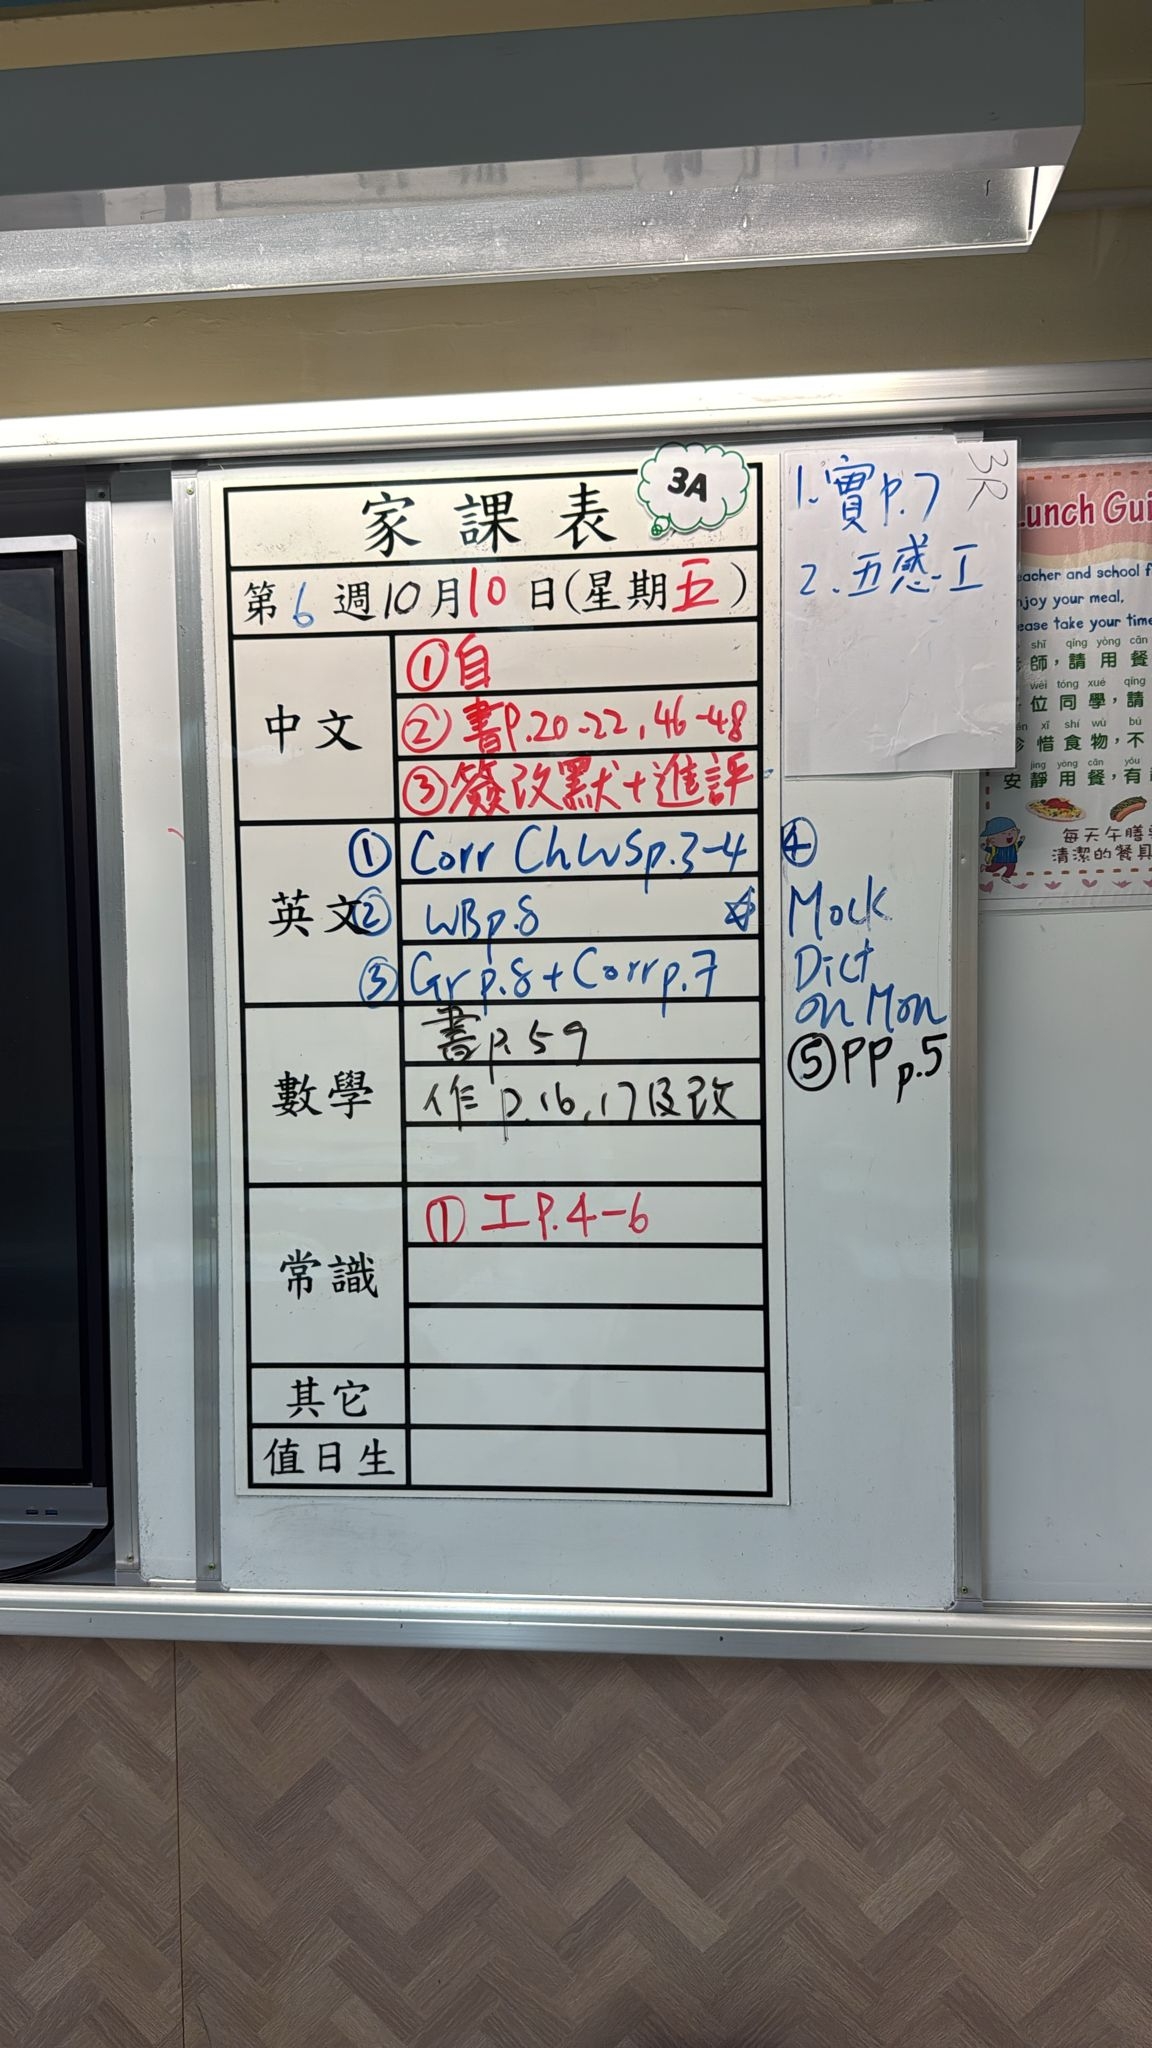 家課表
3A
第6週10月10日(星期五)
中文
①自
②書P.20-22,46-48
③簽改默+進評
英文
①Corr Ch WS p.3-4
②WB p.8 ☆
③Gr p.8 + Corr p.7
④
Mock
Dict
on Mon
⑤PP p.5
數學
書p.59
作p.16,17及改
常識
①工P.4-6
其它
值日生
3R
1.實p.7
2.五感工
Lunch Gui
eacher and school f
njoy your meal,
ease take your time
shī qǐng yòng cān
師，請用餐
wèi tóng xué qǐng
位同學，請
xī shí wù bú
惜食物，不
jìng yòng cān yǒu
安靜用餐，有
每天午膳
清潔的餐具